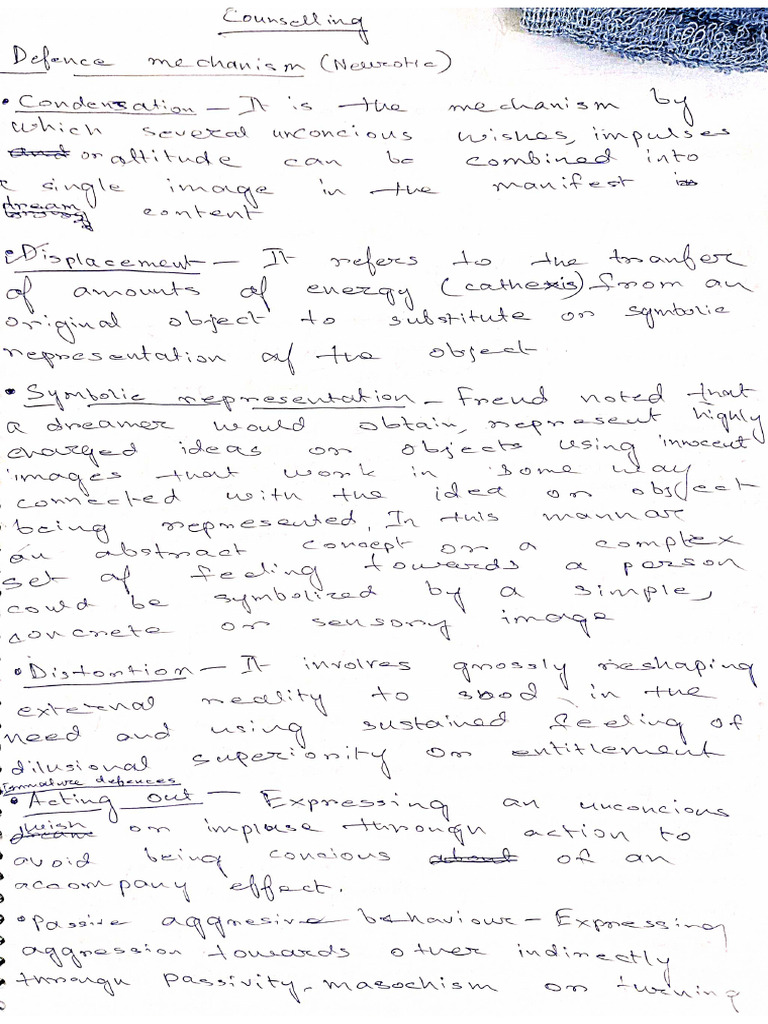 Counselling
Defence mechanism (Neurotic)
• Condensation – It is the mechanism by
which several unconcious wishes, impulses
and or attitude can be combined into
single image in the manifest
dream content
• Displacement – It refers to the tranfer
of amounts of energy (cathexis) from an
original object to substitute or symbolic
representation of the object
• Symbolic representation – Freud noted that
a dreamer would obtain, represent highly
charged ideas or objects using innocent
images that work in some way
connected with the idea or object
being represented, In this mannar
an abstract concept or a complex
set of feeling towards a person
could be symbolized by a simple,
concrete or sensory image
• Distortion – It involves grossly reshaping
external reality to in the
need and using sustained feeling of
dilusional superiority or entitlement
Immature defences
• Acting out – Expressing an unconcious
wish or implase through action to
avoid being concious of an
accompany effect.
• Passive aggresive behaviour – Expressing
aggression towards other indirectly
through passivity, masochism or turning